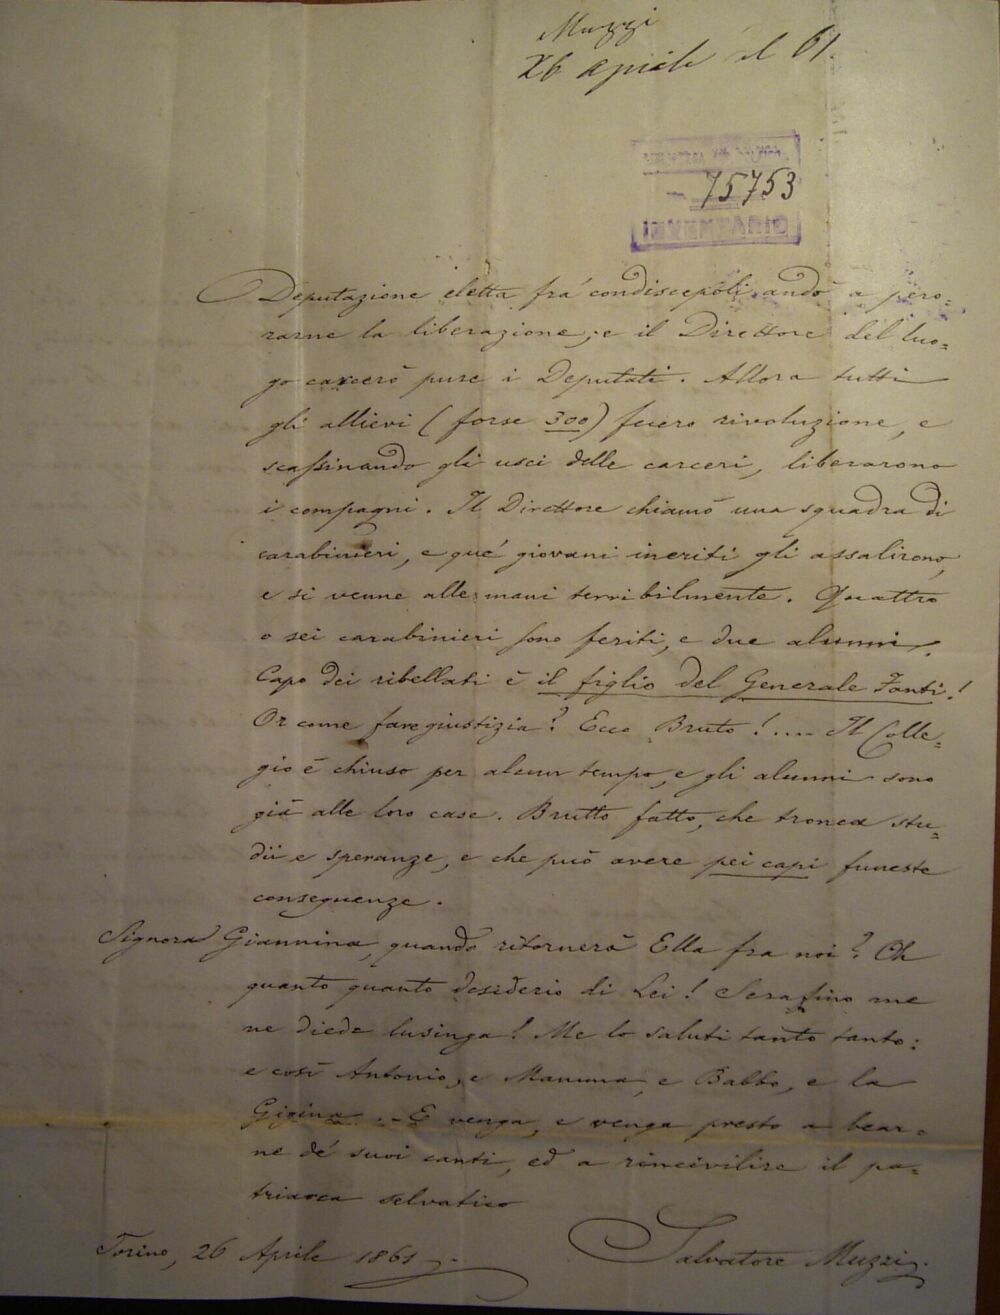 Muzzi
26 aprile del 61.
75753
Deputazione eletta frà condiscepoli andò a pero-
rarne la liberazione, e il Direttore del luo-
go carcerò pure i Deputati. Allora tutti
gli allievi (forse 300) fecero rivoluzione, e
scassinando gli usci delle carceri, liberarono
i compagni. Il Direttore chiamò una squadra di
carabinieri, e qué giovani ineriti gli assalirono,
e si venne alle mani terribilmente. Quattro
o sei carabinieri sono feriti, e due alunni.
Capo dei ribellati è il figlio del Generale Fanti!
Or come fare giustizia? Ecco Bruto!.... Il Colle-
gio è chiuso per alcun tempo, e gli alunni sono
già alle loro case. Brutto fatto, che tronca stu-
dii e speranze, e che può avere pei capi funeste
conseguenze.
Signora Giannina, quando ritornerà Ella fra noi? Oh
quanto quanto desiderio di Lei! Serafino me
ne diede lusinga! Me lo saluti tanto tanto:
e così Antonio, e Mamma e Babbo, e la
Gigina... E venga, e venga presto a bear-
ne dé suoi canti, ed a rincivilire il pa-
triarca selvatico
Torino, 26 Aprile 1861
Salvatore Muzzi.